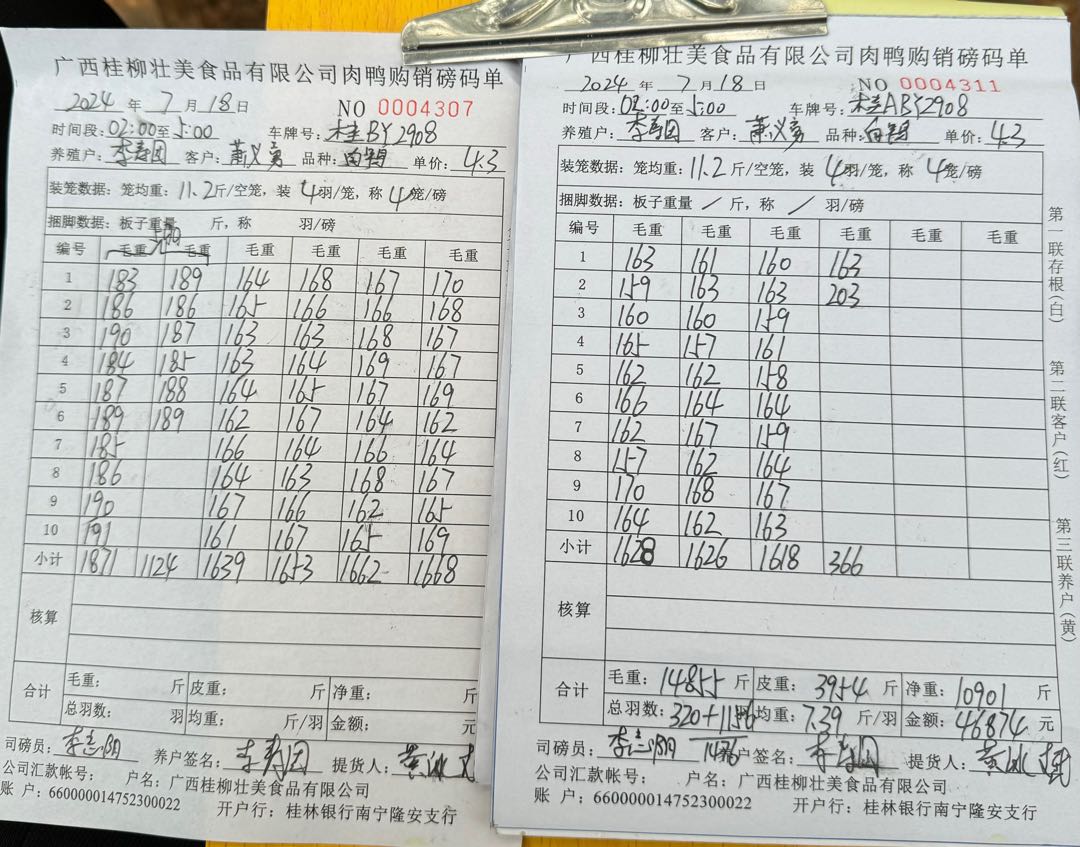 广西桂柳壮美食品有限公司肉鸭购销磅码单
2024 年 7 月 18 日 NO 0004307
时间段: 02:00 至 5:00 车牌号: 桂BY2908
养殖户: 李寿团 客户: 萧义勇 品种: 白鸭 单价: 4.3
装笼数据: 笼均重: 11.2 斤/空笼, 装 4 羽/笼, 称 4 笼/磅
捆脚数据: 板子重量 斤, 称 羽/磅
编号 毛重 毛重 毛重 毛重 毛重 毛重
1 183 189 164 168 167 170
2 186 186 165 166 166 168
3 190 187 163 163 168 167
4 184 185 163 164 169 167
5 187 188 164 165 167 169
6 189 189 162 167 164 162
7 185 166 164 166 164
8 186 164 163 168 167
9 190 167 166 162 165
10 191 161 167 165 169
小计 1871 1124 1639 1653 1662 1668
核算
合计 毛重: 斤 皮重: 斤 净重: 斤
总羽数: 羽 均重: 斤/羽 金额: 元
司磅员: 李志阴 养户签名: 李寿团 提货人: 黄冰
公司汇款帐号: 户名: 广西桂柳壮美食品有限公司
账 户: 660000014752300022
开户行: 桂林银行南宁隆安支行
广西桂柳壮美食品有限公司肉鸭购销磅码单
2024 年 7 月 18 日 NO 0004311
时间段: 02:00 至 5:00 车牌号: 桂ABY2908
养殖户: 李寿团 客户: 萧义勇 品种: 白鸭 单价: 4.3
装笼数据: 笼均重: 11.2 斤/空笼, 装 4 羽/笼, 称 4 笼/磅
捆脚数据: 板子重量 / 斤, 称 / 羽/磅
编号 毛重 毛重 毛重 毛重 毛重 毛重
1 163 161 160 163
2 159 163 163 203
3 160 160 159
4 165 157 161
5 162 162 158
6 166 164 164
7 162 167 159
8 157 162 164
9 170 168 167
10 164 162 163
小计 1628 1626 1618 366
核算
合计 毛重: 14855 斤 皮重: 3954 斤 净重: 10901 斤
总羽数: 320+1156 均重: 7.39 斤/羽 金额: 46874 元
1476
司磅员: 李志阴 户签名: 李寿团 提货人: 黄冰
公司汇款帐号: 户名: 广西桂柳壮美食品有限公司
账 户: 660000014752300022
开户行: 桂林银行南宁隆安支行
第一联存根(白)
第二联客户(红)
第三联养户(黄)